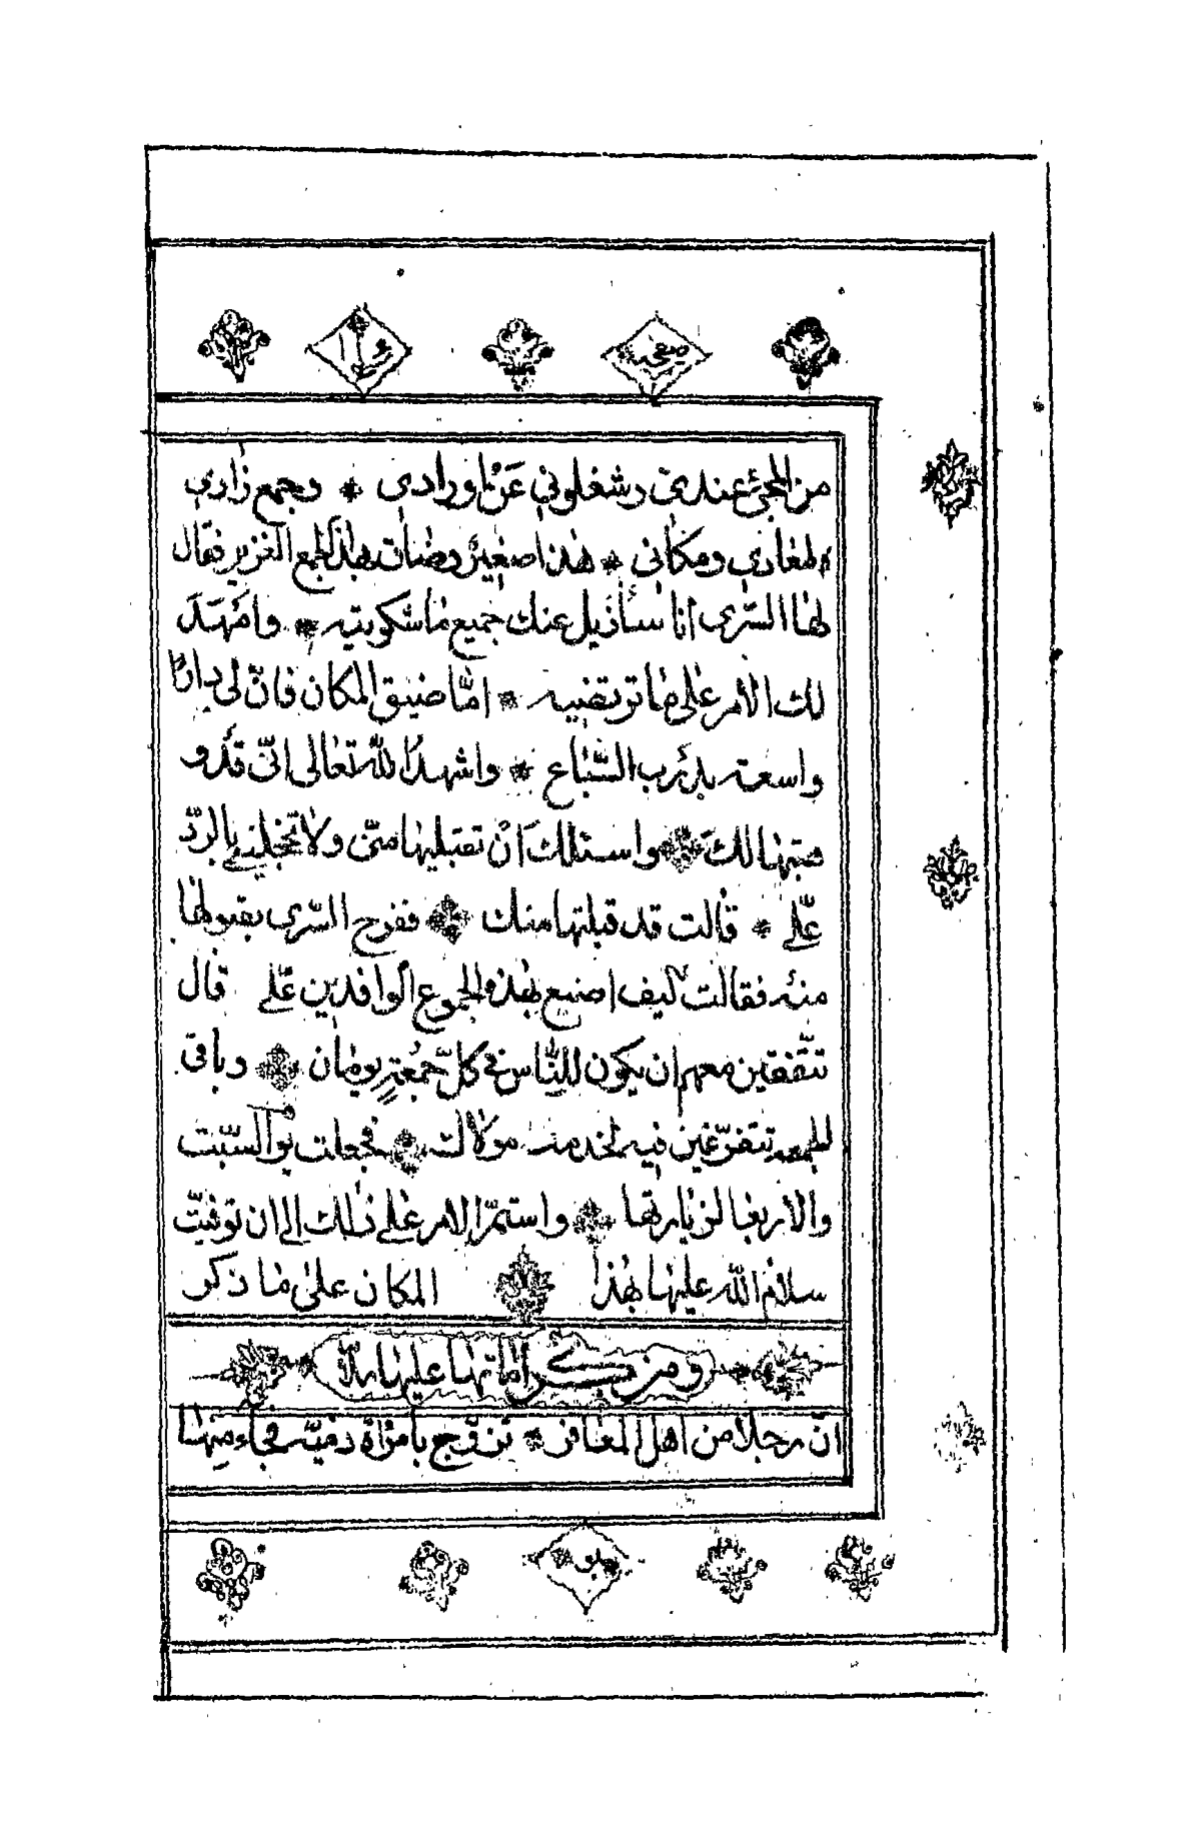 صحيفة
من المجئ عندي وشغلوني عَنْ اورادي * وجمع زادي
لمعادي ومكاني * هذا صغير وضاق بهذا الجمع الغزير فقال
لها السّرى أنا سأزيل عنك جميع ما شكوتيه * وامَهّدَ
لك الامر على ما ترتضيه * امّا ضيق المكان فانّ لى دارًا
واسعة بدَرب السّباع * واشهدُ الله تعالى انّى قَدْ و
هبتها لكَ * واسئلك اَنْ تقبليها منّى ولا تخجليني بالردّ
علّى * قالت قد قبلتها منك * ففرح السّرى بقبولها
منه فقالت كيف اصنع بهذه الجموع الوافدين علّى قال
تتّفقين معهم ان يكون للنّاس في كلّ جمُعةٍ يومان * وباقى
الجمعه تتفرّغين فيه لخدمة مولاك * فجعلت يوم السّبت
والاربعا لزيارتها * واستمرّ الامر على ذلك الى ان توفّيت
سلام الله عليها بهذا المكان على ما ذكر
ومن كراماتها عليها
انّ رجلا من اهل المعافر * تزوّج بامرأة ذميّه فجاء منها